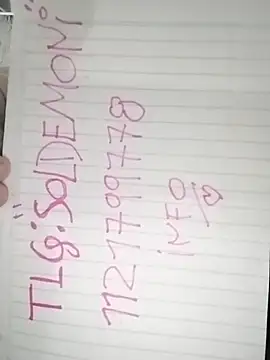 TLG: SOLDEMONI
1121799778
iNFO